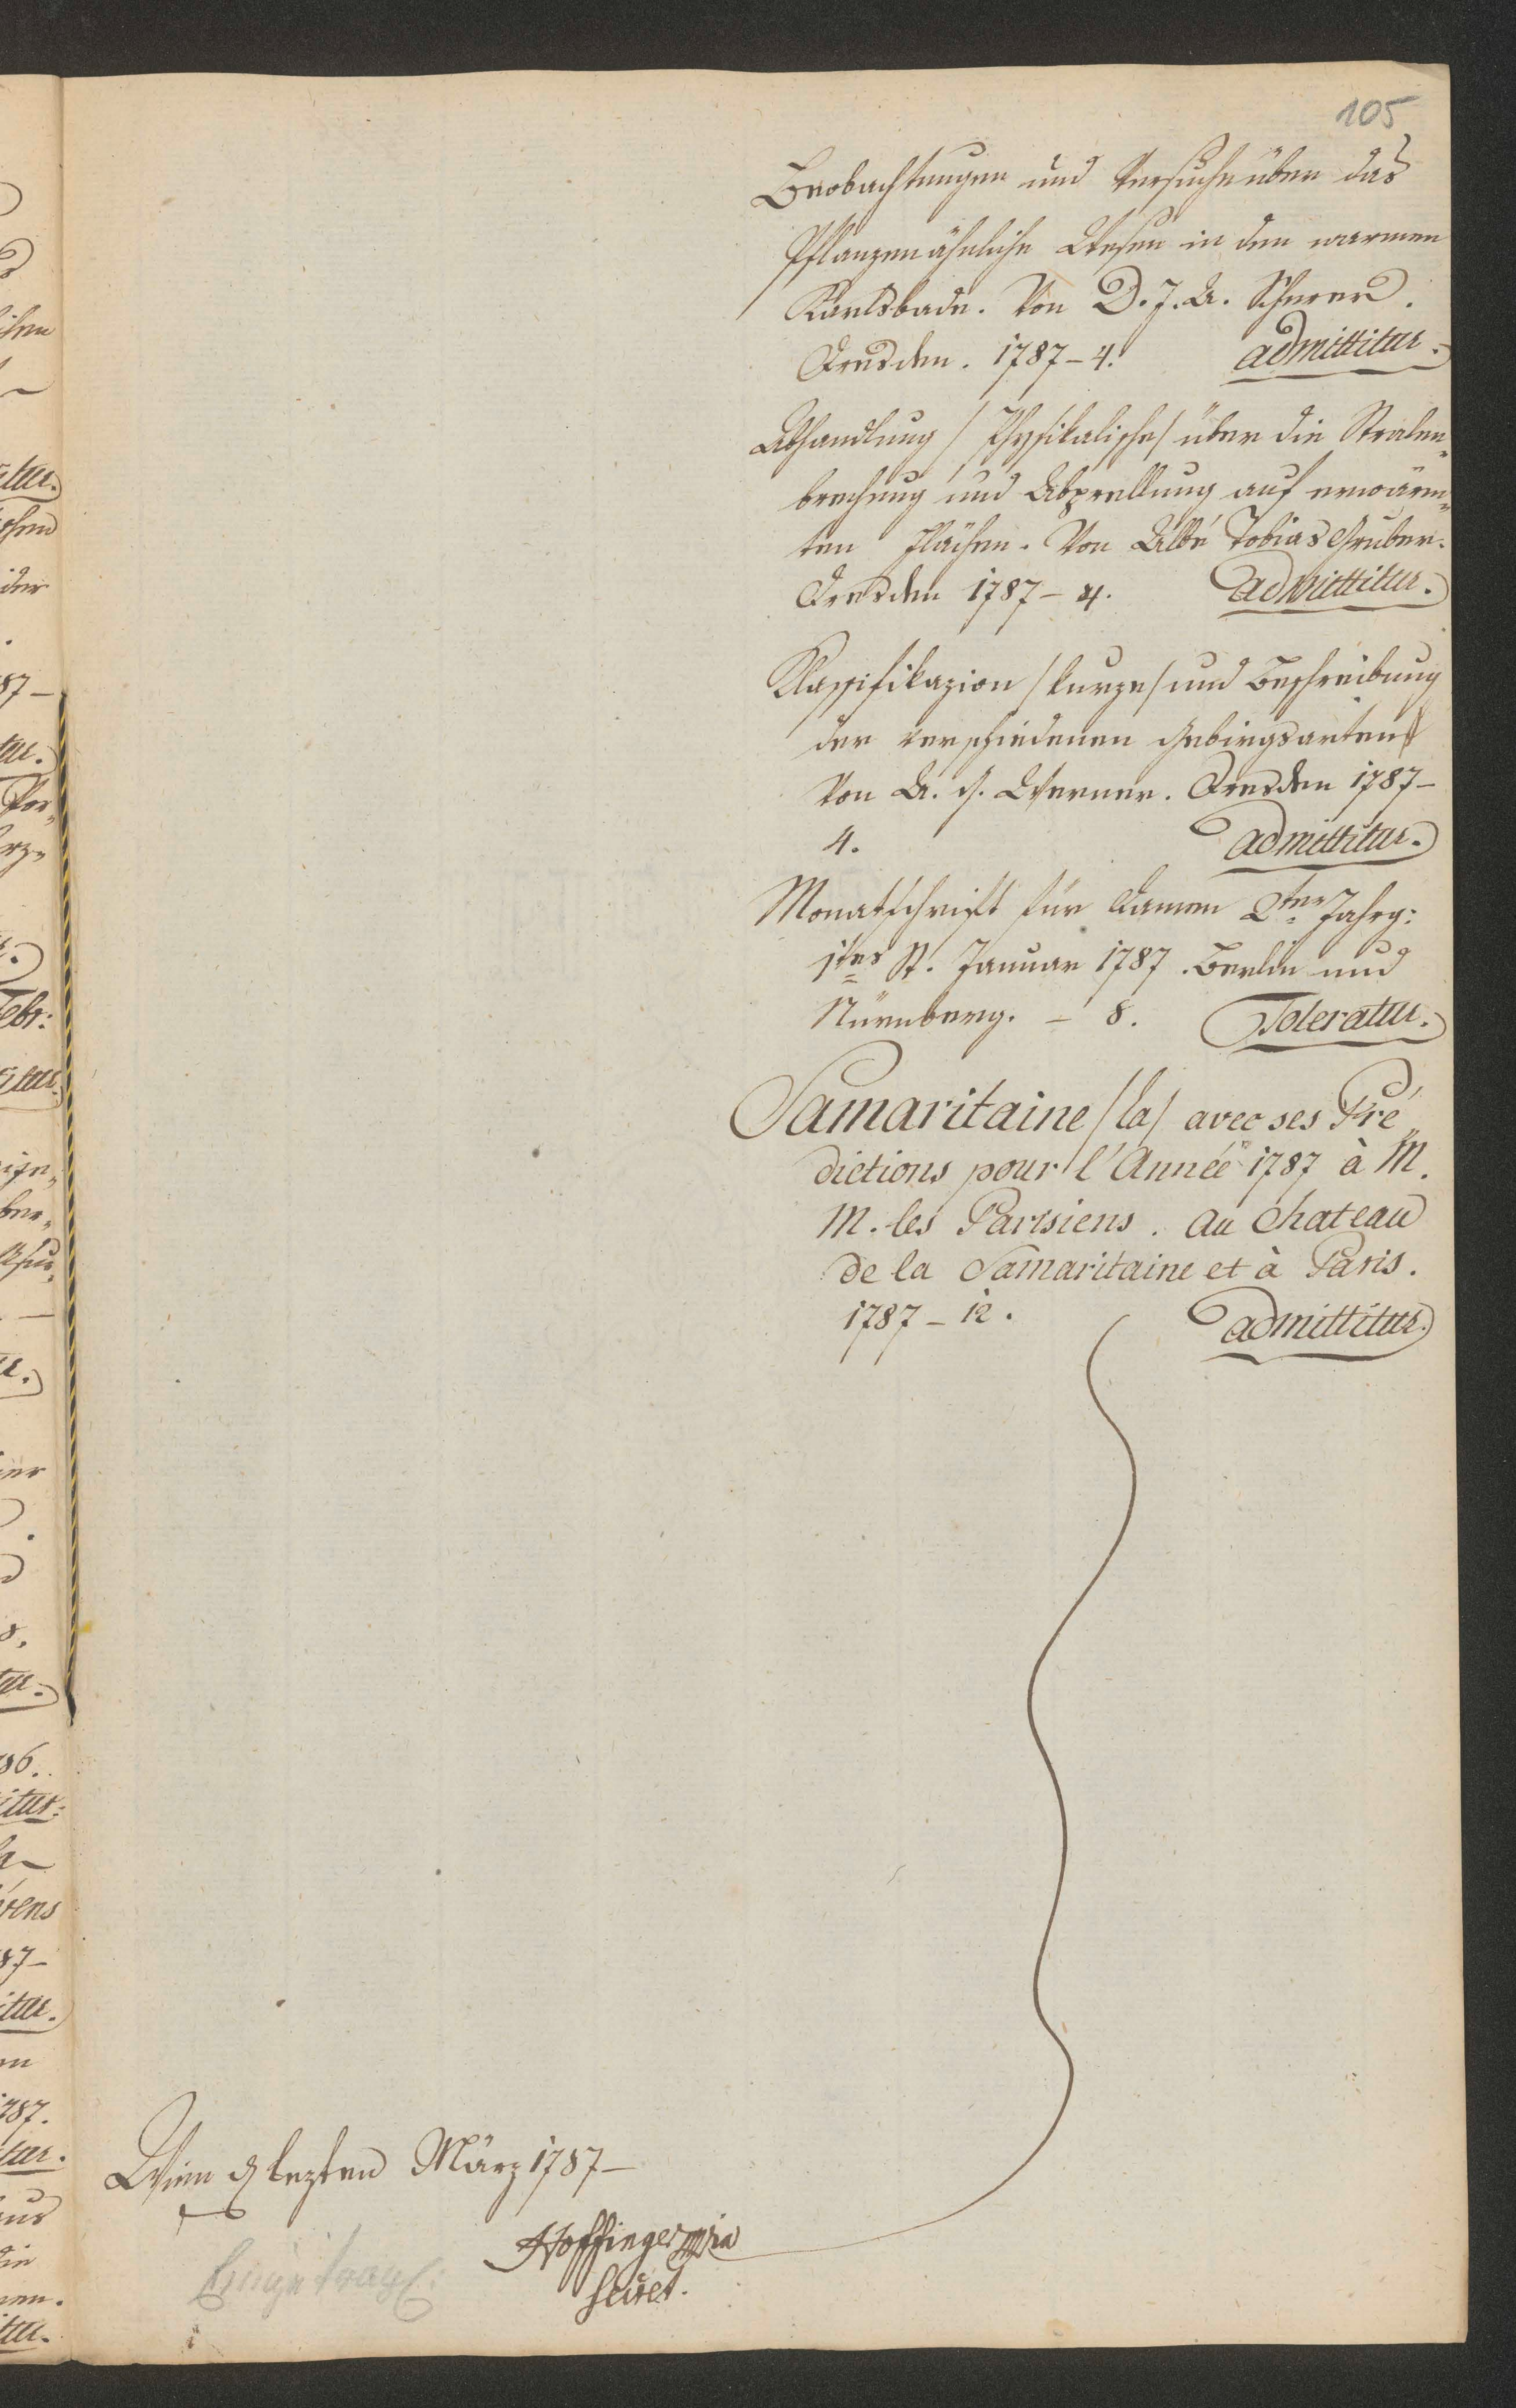 105
Beobachtungen und Versuche über das
Pflanzenähnliche Wesen in den warmen
Karlsbade. Von D. J. A. Scherer.
Dresden. 1787 - 4. admittitur.
Abhandlung /Physikalische/ über die Stralen„
brechung und Abprellung auf erwärm„
ten Flächen. Von Abbé Tobias Gruber.
Dresden 1787 - 4. admittitur.
Klassifikazion /kurze/ und Beschreibung
der verschiedenen Gebirgsarten
Von A. G. Werner. Dresden 1787 -
4. admittitur.
Monatschrift für Damen 2ter Jahrg:
1tes St. Januar 1787. Berlin und
Nürnberg. - 8. Toleratur.
Samaritaine /la/ avec ses Pré„
dictions pour l'Année 1787 à M.
M. les Parisiens. Au Chateau
de la Samaritaine et à Paris.
1787 - 12. admittitur.
Wien den lezten März 1787 -
Hoffinger mpria
Secret.